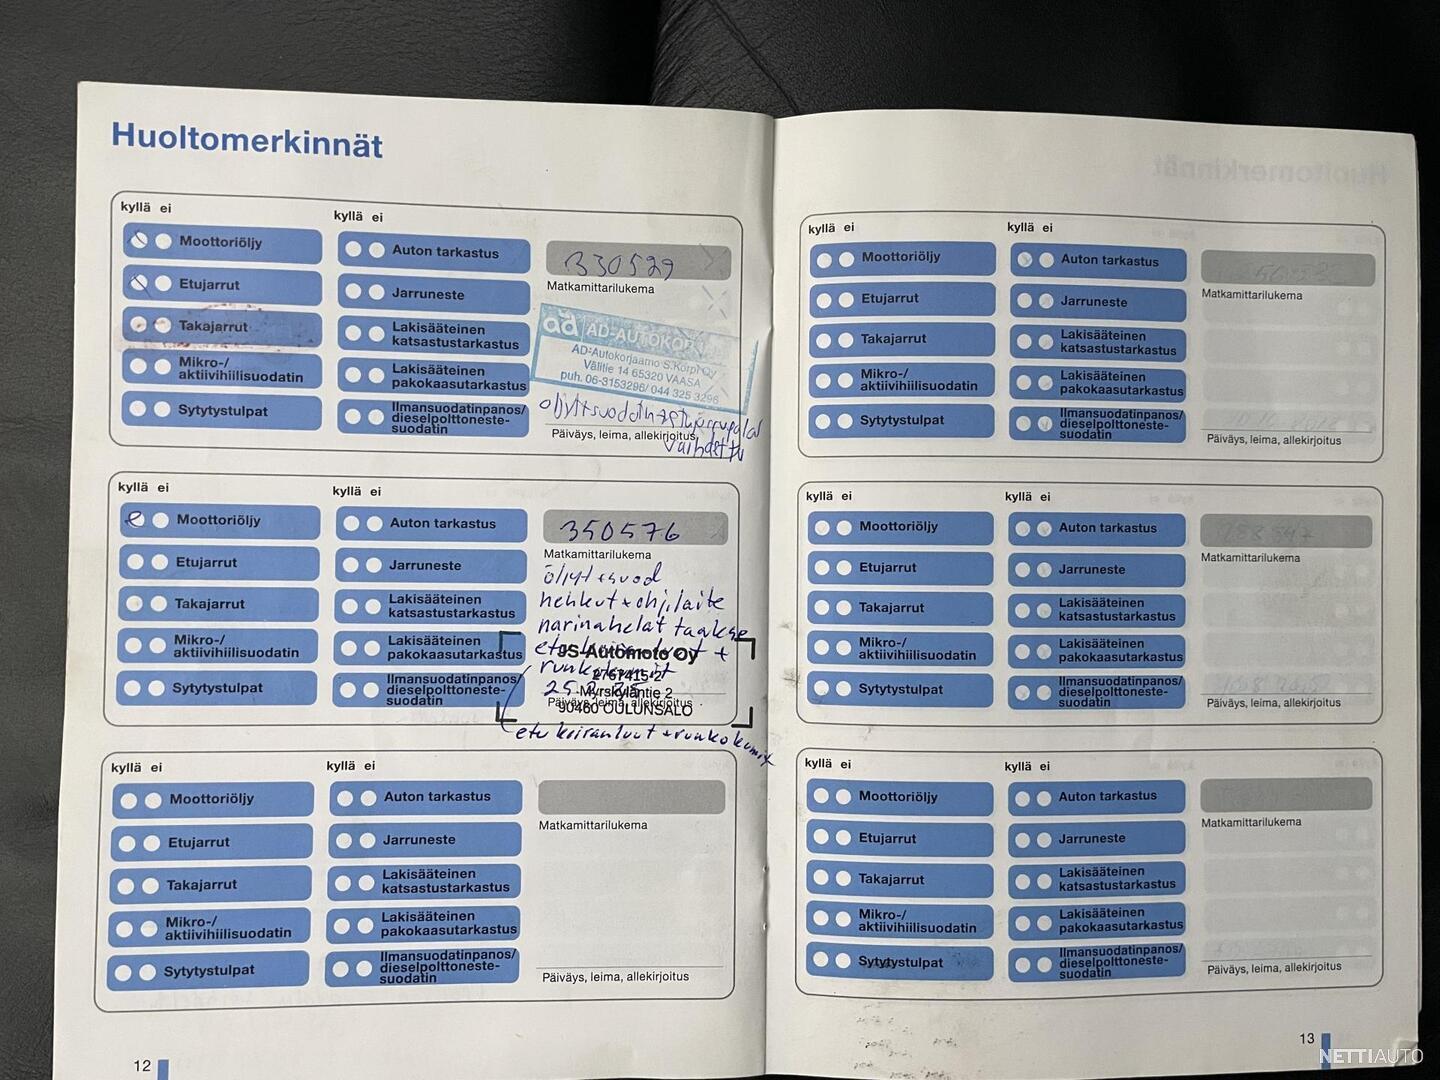 Huoltomerkinnät
kyllä ei
kyllä ei
Moottoriöljy
Etujarrut
Takajarrut
Mikro-/
aktiivihiilisuodatin
Sytytystulpat
Auton tarkastus
Jarruneste
Lakisääteinen
katsastustarkastus
Lakisääteinen
pakokaasutarkastus
Ilmansuodatinpanos/
dieselpolttoneste-
suodatin
330529
Matkamittarilukema
ad AD-AUTOKOR
AD-Autokorjaamo S.Korpi Oy
Välitie 14 65320 VAASA
puh. 06-3153296/ 044 325 3296
Päiväys, leima, allekirjoitus
vaihdettu
kyllä ei
kyllä ei
Moottoriöljy
Etujarrut
Takajarrut
Mikro-/
aktiivihiilisuodatin
Sytytystulpat
Auton tarkastus
Jarruneste
Lakisääteinen
katsastustarkastus
Lakisääteinen
pakokaasutarkastus
Ilmansuodatinpanos/
dieselpolttoneste-
suodatin
350576
Matkamittarilukema
öljyt+suod
hehkut+ohj.laite
narinahelat taakse
JS-Automoto Oy
2767415-2
Myrskyläntie 2
Päiväys, leima, allekirjoitus
90460 OULUNSALO
etu koiranluut+runkokumit
kyllä ei
kyllä ei
Moottoriöljy
Etujarrut
Takajarrut
Mikro-/
aktiivihiilisuodatin
Sytytystulpat
Auton tarkastus
Jarruneste
Lakisääteinen
katsastustarkastus
Lakisääteinen
pakokaasutarkastus
Ilmansuodatinpanos/
dieselpolttoneste-
suodatin
Matkamittarilukema
Päiväys, leima, allekirjoitus
12
kyllä ei
kyllä ei
Moottoriöljy
Etujarrut
Takajarrut
Mikro-/
aktiivihiilisuodatin
Sytytystulpat
Auton tarkastus
Jarruneste
Lakisääteinen
katsastustarkastus
Lakisääteinen
pakokaasutarkastus
Ilmansuodatinpanos/
dieselpolttoneste-
suodatin
Matkamittarilukema
Päiväys, leima, allekirjoitus
kyllä ei
kyllä ei
Moottoriöljy
Etujarrut
Takajarrut
Mikro-/
aktiivihiilisuodatin
Sytytystulpat
Auton tarkastus
Jarruneste
Lakisääteinen
katsastustarkastus
Lakisääteinen
pakokaasutarkastus
Ilmansuodatinpanos/
dieselpolttoneste-
suodatin
Matkamittarilukema
Päiväys, leima, allekirjoitus
kyllä ei
kyllä ei
Moottoriöljy
Etujarrut
Takajarrut
Mikro-/
aktiivihiilisuodatin
Sytytystulpat
Auton tarkastus
Jarruneste
Lakisääteinen
katsastustarkastus
Lakisääteinen
pakokaasutarkastus
Ilmansuodatinpanos/
dieselpolttoneste-
suodatin
Matkamittarilukema
Päiväys, leima, allekirjoitus
13
NETTIAUTO